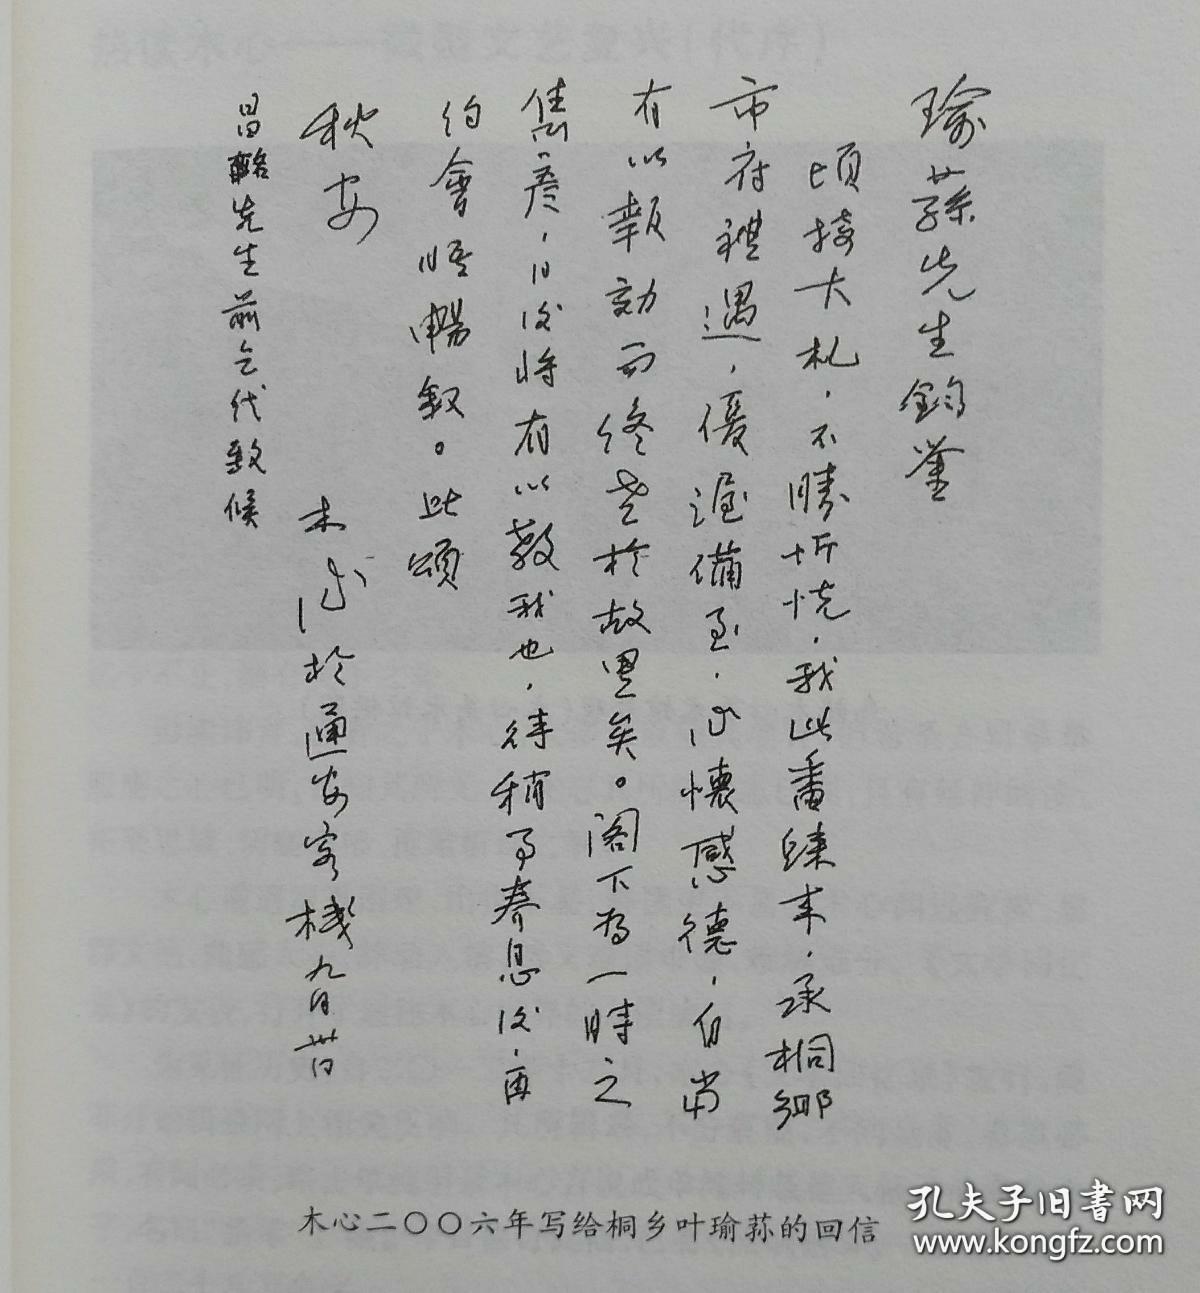 瑜蓀先生鈞鑒
頃接大札，不勝忻悦，我此番歸來，承桐鄉
市府禮遇，優渥備至，心懷感德，自當
有以報効而終老於故里矣。閣下為一時之
雋彥，日後將有以教我也，待稍事養息後，再
約會晤暢叙。此頌
秋安
木心於通安客棧九月廿日
昌 先生前乞代致候
木心二〇〇六年写给桐乡叶瑜荪的回信
孔夫子旧书网
www.kongfz.com